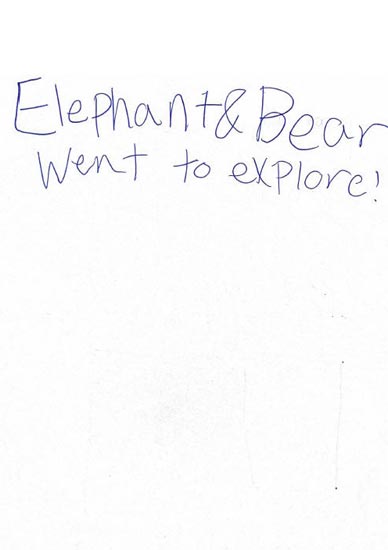 Elephant & Bear
Went to explore!